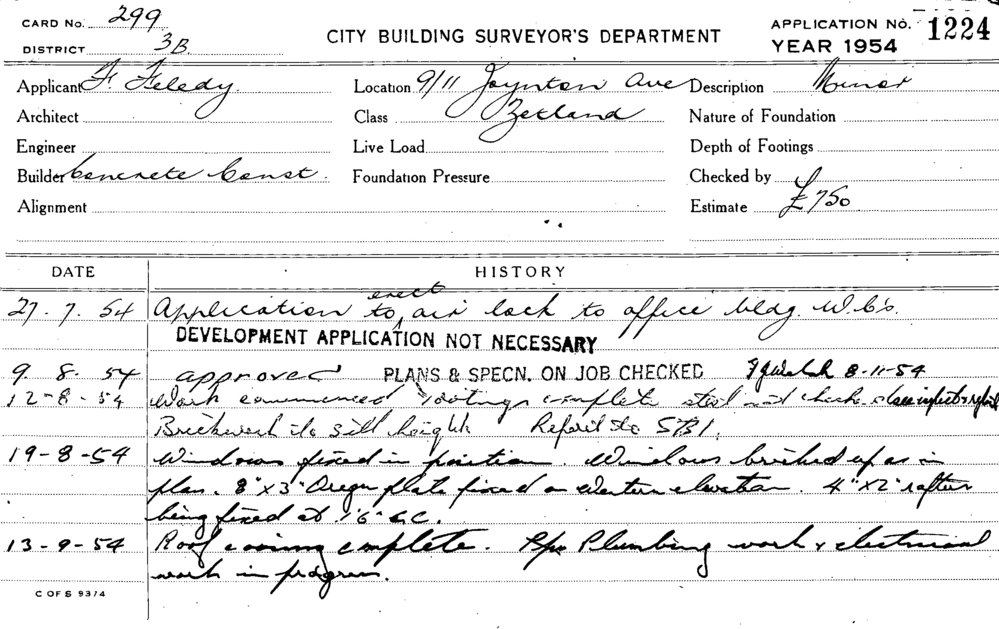 CARD NO. 299
DISTRICT 3B
CITY BUILDING SURVEYOR'S DEPARTMENT
APPLICATION NO. 1224
YEAR 1954
Applicant F. Feledy Location 9/11 Joynton Ave Description Minor
Architect Class Zetland Nature of Foundation
Engineer Live Load Depth of Footings
Builder Concrete Const. Foundation Pressure Checked by
Alignment Estimate £750
DATE HISTORY
27. 7. 54 Application to erect air lock to office bldg. W.C's.
DEVELOPMENT APPLICATION NOT NECESSARY
9. 8. 54 approved PLANS & SPECN. ON JOB CHECKED 8-11-54
12-8-54 Work commenced footings complete steel
Brickwork to sill height
19-8-54 Windows fixed in position. Windows bricked up as in
plan. 8" x 3" Oregon plate fixed on Western elevation. 4" x 2" rafters
being fixed at 1'6" C.C.
13-9-54 Roof complete. Plumbing work & electrical
work in progress.
C OF S 93/4